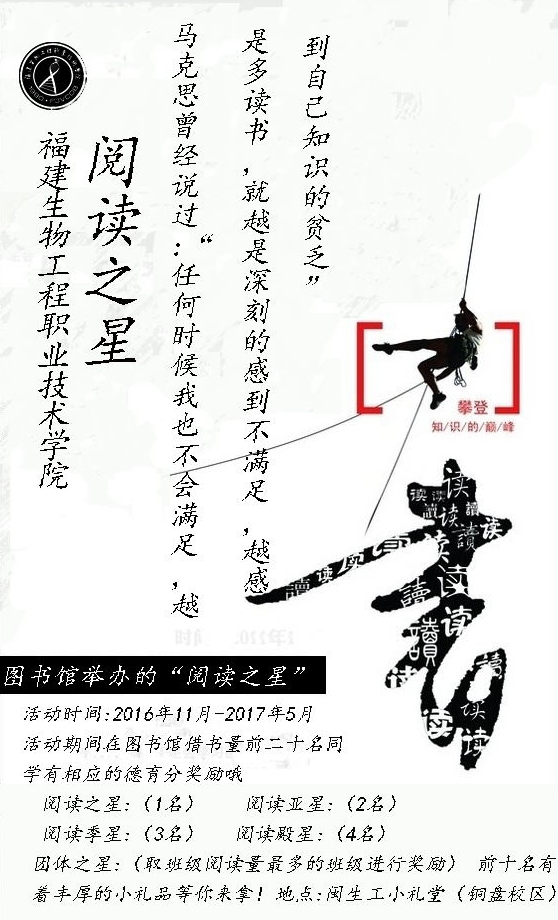 福建生物工程职业技术学院
阅读之星
马克思曾经说过：“任何时候我也不会满足，越
是多读书，就越是深刻的感到不满足，越感
到自己知识的贫乏”
攀登
知/识/的/巅/峰
图书馆举办的“阅读之星”
活动时间:2016年11月-2017年5月
活动期间在图书馆借书量前二十名同
学有相应的德育分奖励哦
阅读之星:（1名） 阅读亚星:（2名）
阅读季星:（3名） 阅读殿星:（4名）
团体之星:（取班级阅读量最多的班级进行奖励） 前十名有
着丰厚的小礼品等你来拿！地点:闽生工小礼堂（铜盘校区）